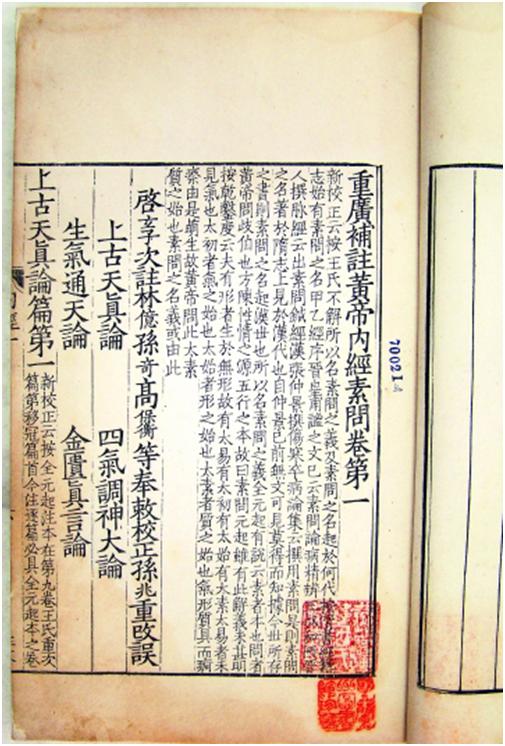 重廣補註黃帝內經素問卷第一
新校正云按王氏不解所以名素問之義及素問之名起於何代按隋書經籍
志始有素問之名甲乙經序晉皇甫謐之文已云素問論病精辨王叔和西晉
人撰脉經云出素問鍼經漢張仲景撰傷寒卒病論集云撰用素問是則素問
之名著於隋志上見於漢代也自仲景已前無文可見莫得而知據今世所存
之書則素問之名起漢世也所以名素問之義全元起有說云素者本也問者
黃帝問歧伯也方陳性情之源五行之本故曰素問元起雖有此解義未甚明
按乾鑿度云夫有形者生於無形故有太易有太初有太始有太素太易者未
見氣也太初者氣之始也太始者形之始也太素者質之始也氣形質具而痾
瘵由是萌生故黃帝問此太素
質之始也素問之名義或由此
啓玄子次註林億孫奇高保衡等奉敕校正孫兆重改誤
上古天眞論 四氣調神大論
生氣通天論 金匱眞言論
上古天眞論篇第一 新校正云按全元起注本在第九卷王氏重次
篇第移冠篇首今注逐篇必具全元起本之卷
700214